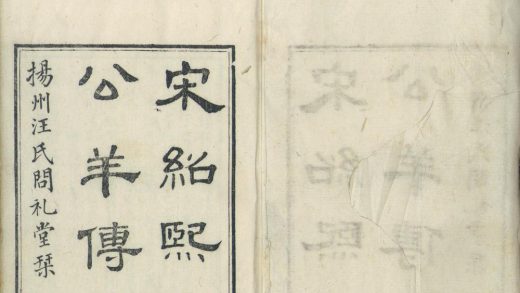 宋紹熙
公羊傳
揚州汪氏問礼堂栞